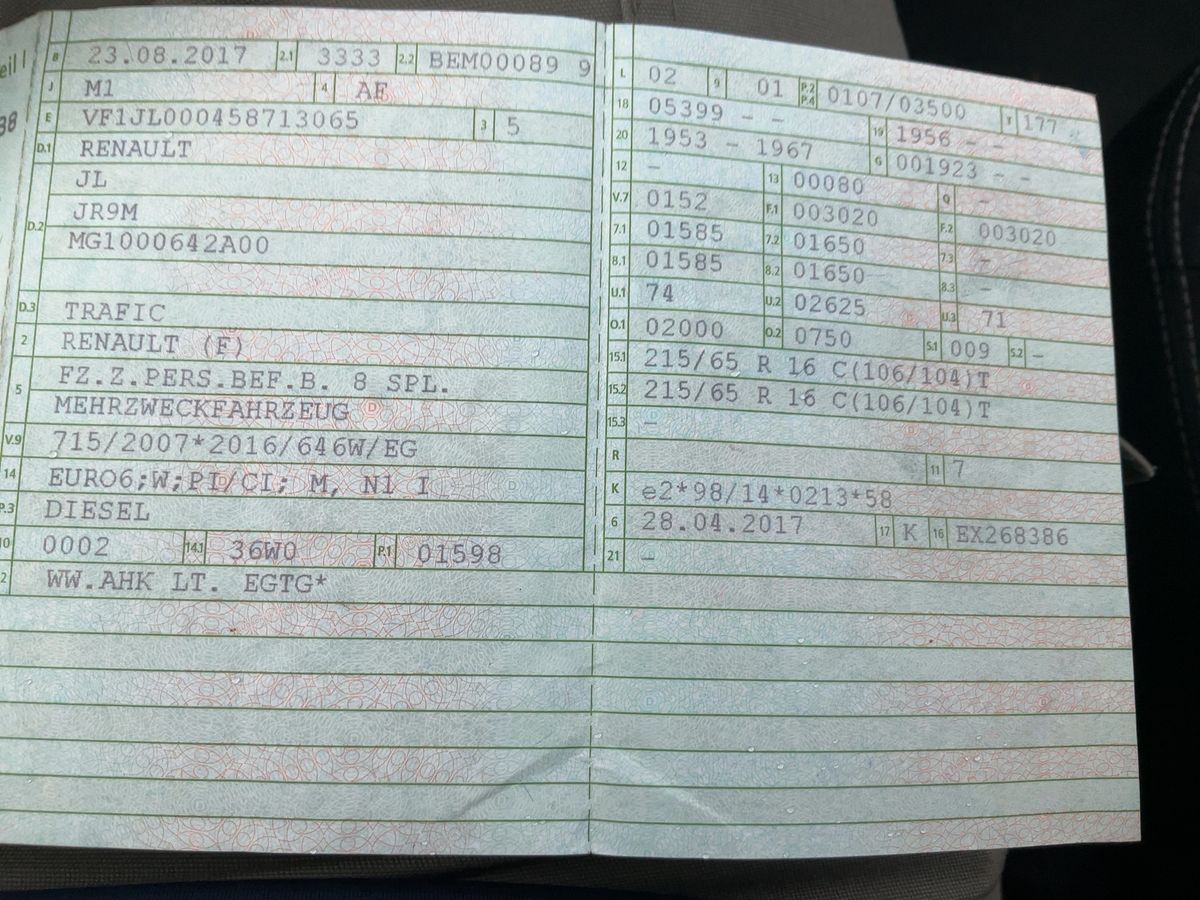 eil I
38
B 23.08.2017 2.1 3333 2.2 BEM00089 9
J M1 4 AF
E VF1JL000458713065 3 5
D.1 RENAULT
D.2 JL
JR9M
MG1000642A00
D.3 TRAFIC
2 RENAULT (F)
5 FZ.Z.PERS.BEF.B. 8 SPL.
MEHRZWECKFAHRZEUG
V.9 715/2007*2016/646W/EG
14 EURO6;W;PI/CI; M, N1 I
P.3 DIESEL
10 0002 14.1 36W0 P.1 01598
2 WW.AHK LT. EGTG*
L 02 9 01 P.2 P.4 0107/03500 T 177
18 05399 - - 19 1956 - -
20 1953 - 1967 G 001923 - -
12 - 13 00080 Q -
V.7 0152 F.1 003020 F.2 003020
7.1 01585 7.2 01650 7.3 -
8.1 01585 8.2 01650 8.3 -
U.1 74 U.2 02625 U.3 71
O.1 02000 O.2 0750 S.1 009 S.2 -
15.1 215/65 R 16 C(106/104)T
15.2 215/65 R 16 C(106/104)T
15.3 -
R 11 7
K e2*98/14*0213*58
6 28.04.2017 17 K 16 EX268386
21 -